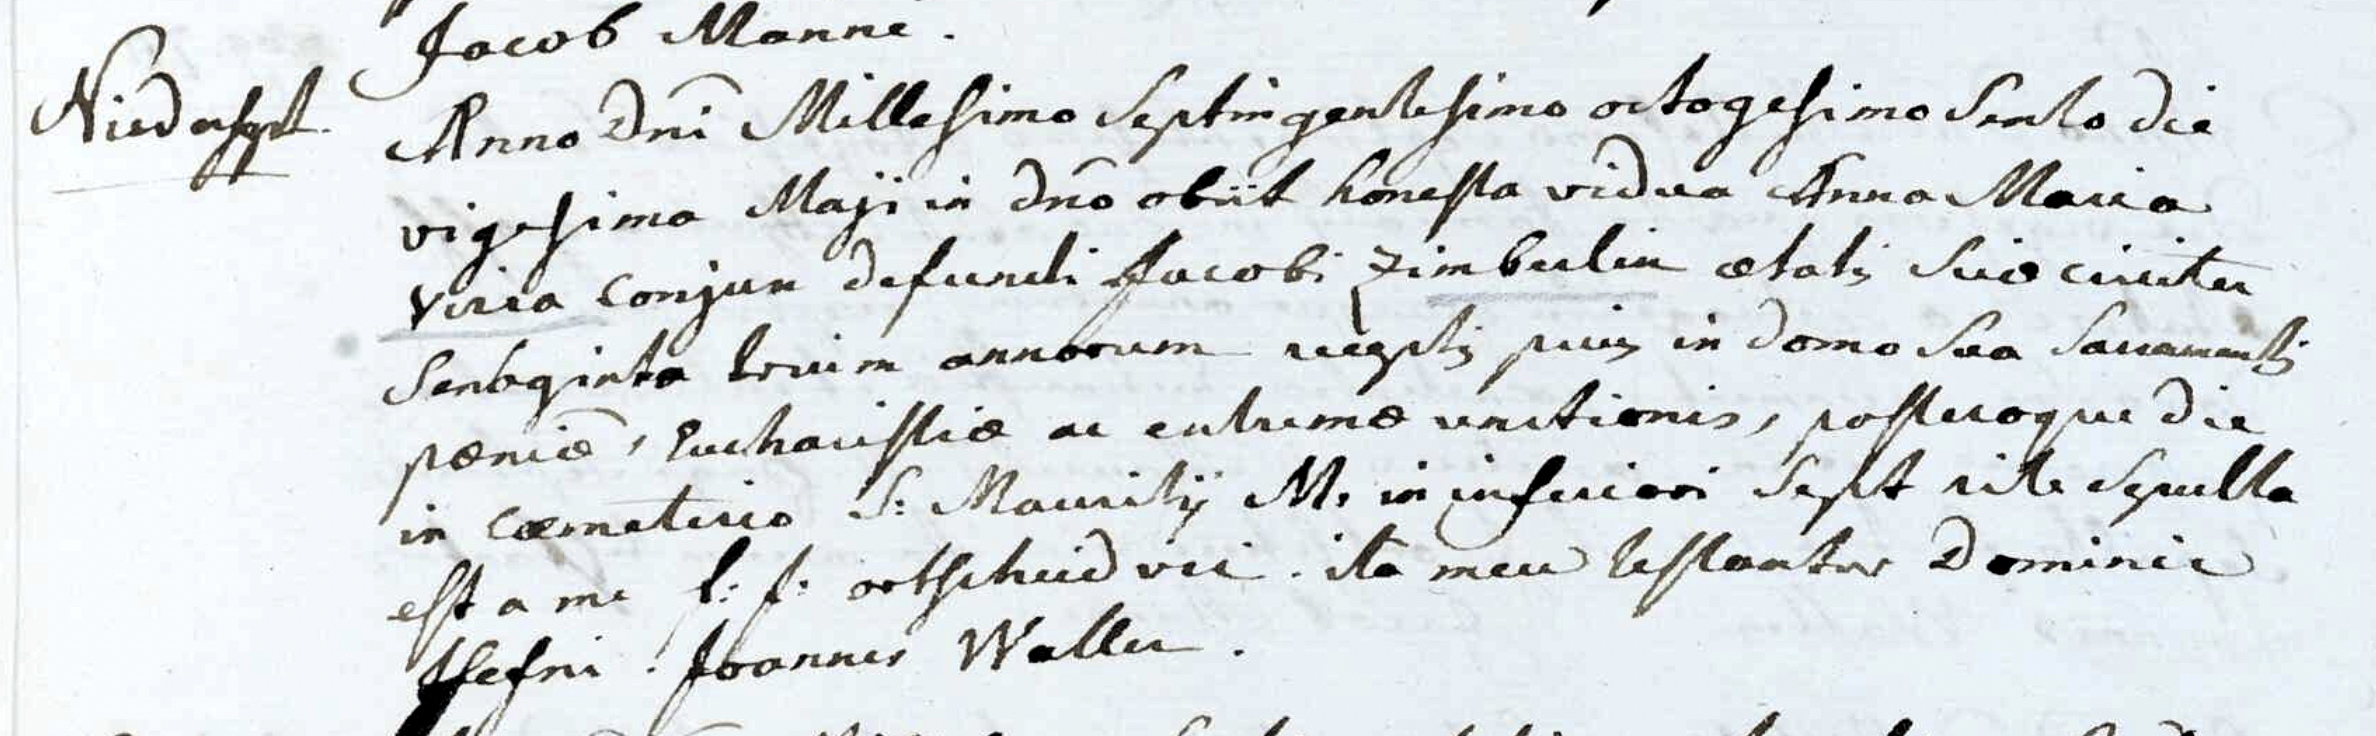 Jacob Manne.
Niedersept.
Anno Dni Millesimo Septingentesimo octogesimo Sexto die
vigesima Maji in dno obiit honesta vidua Anna Maria
conjux defuncti Jacobi Zimberlin ætatis Suæ circiter
Sexaginta trium annorum receptis prius in domo Sua Sacramentis
pœniæ, Eucharistiæ ac extremæ unctionis, posteroque die
in cœmeterio S: Mauritij M. in inferiori Sept rite sepulta
est a me f: f: ortscheid vic. ita mecu testantur Dominic
Joannes Waller.